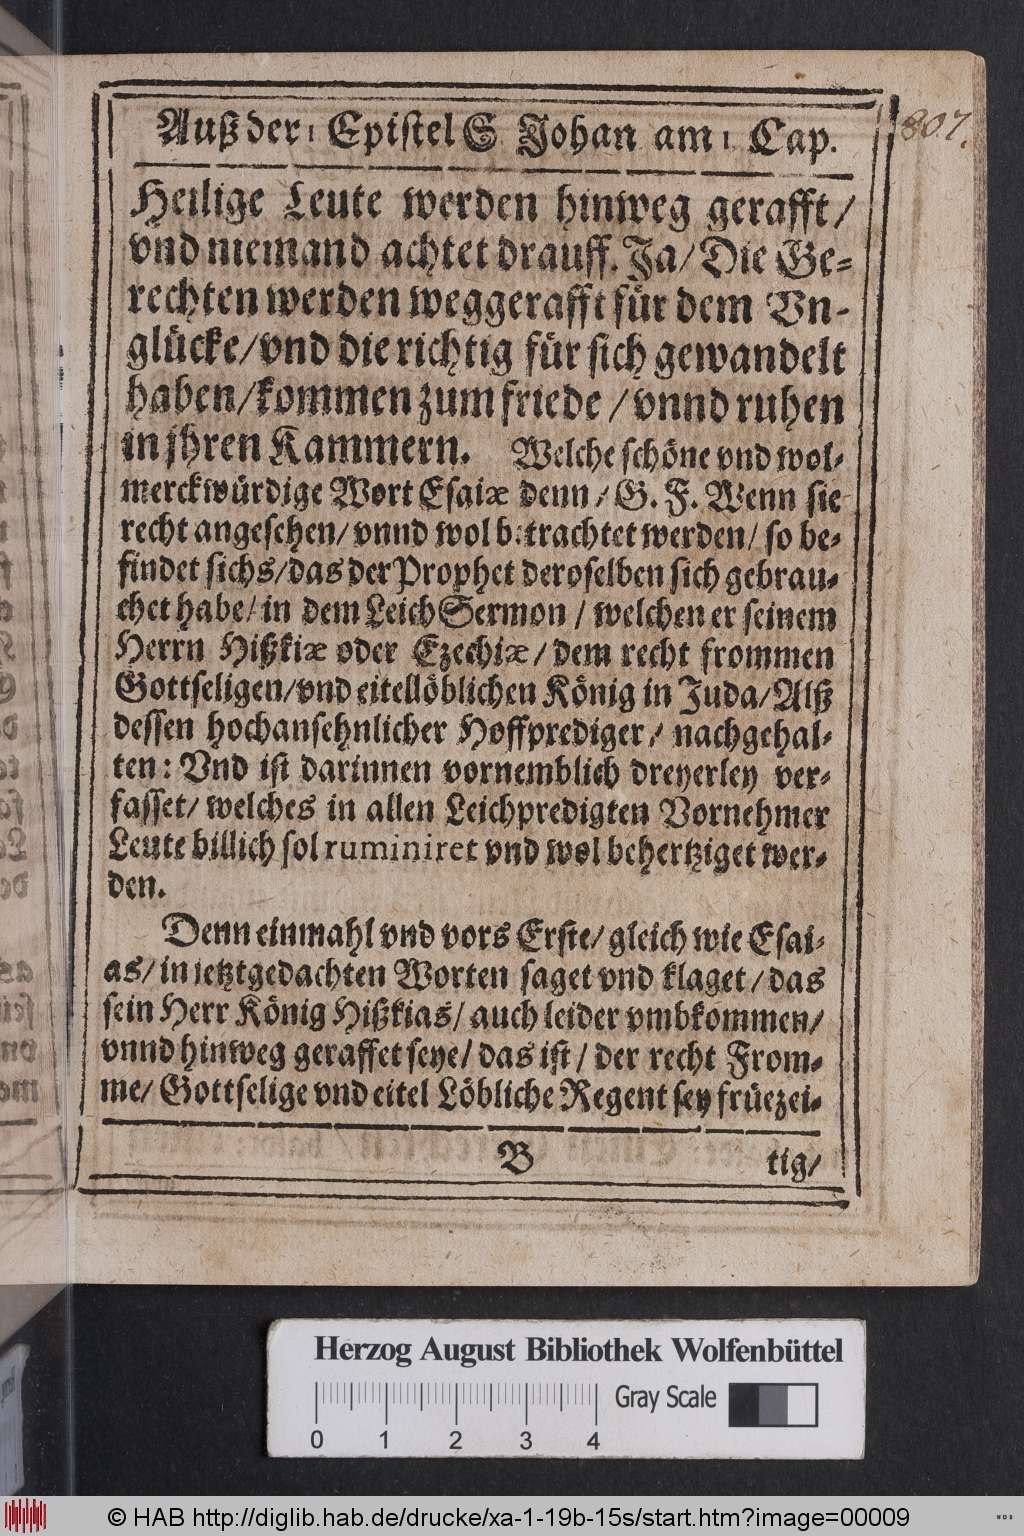 Auß der 1 Epistel S Johan am 1 Cap.
807.
Heilige Leute werden hinweg gerafft/
vnd niemand achtet drauff. Ja/ Die Ge-
rechten werden weggerafft für dem Vn-
glücke/ vnd die richtig für sich gewandelt
haben/ kommen zum friede / vnnd ruhen
in jhren Kammern. Welche schöne vnd wol-
merckwürdige Wort Esaiæ denn / G. F. Wenn sie
recht angesehen/ vnnd wol betrachtet werden/ so be-
findet sichs/ das der Prophet deroselben sich gebrau-
chet habe/ in dem Leich Sermon / welchen er seinem
Herrn Hißkiæ oder Ezechiæ/ dem recht frommen
Gottseligen/ vnd eitellöblichen König in Juda/ Alß
dessen hochansehnlicher Hoffprediger/ nachgehal-
ten: Vnd ist darinnen vornemblich dreyerley ver-
fasset/ welches in allen Leichpredigten Vornehmer
Leute billich sol ruminiret vnd wol behertziget wer-
den.
Denn einmahl vnd vors Erste/ gleich wie Esai-
as/ in jetztgedachten Worten saget vnd klaget/ das
sein Herr König Hißkias/ auch leider vmbkommen/
vnnd hinweg geraffet seye/ das ist/ der recht From-
me/ Gottselige vnd eitel Löbliche Regent sey früezei-
B tig/
Herzog August Bibliothek Wolfenbüttel
0 1 2 3 4 Gray Scale
© HAB http://diglib.hab.de/drucke/xa-1-19b-15s/start.htm?image=00009